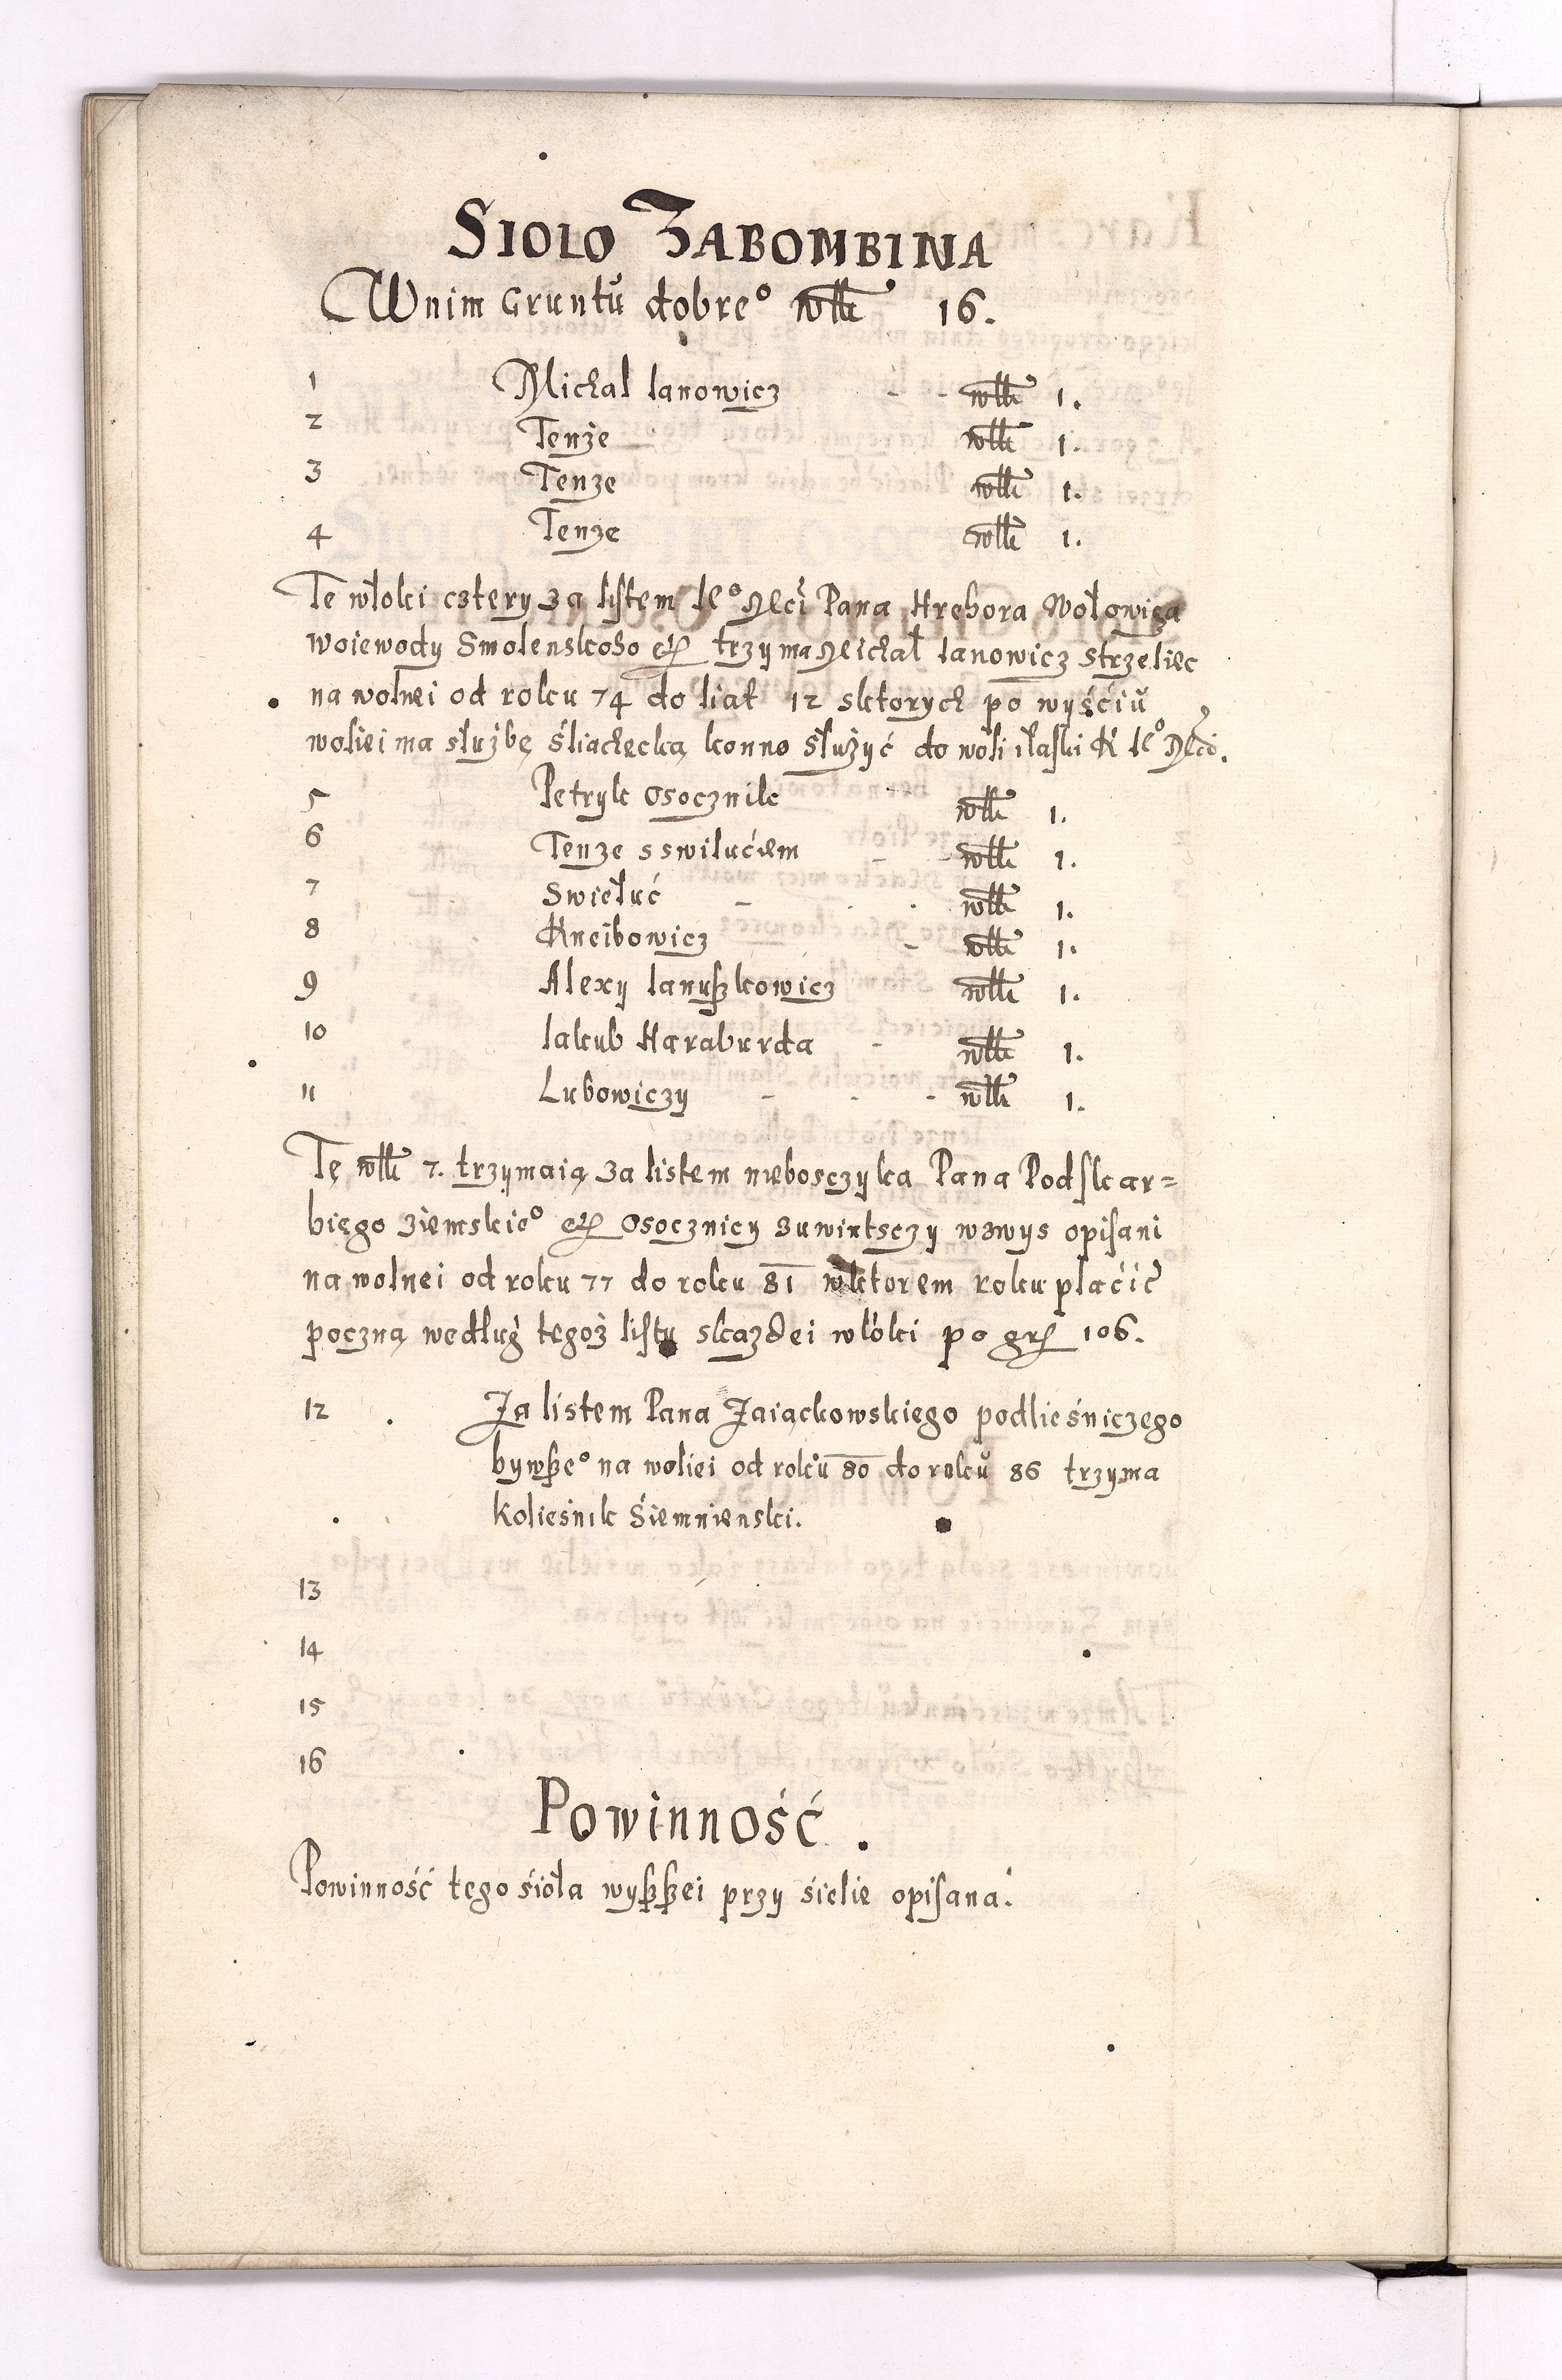 SIOLO ZABOMBINA
W nim Gruntŭ dobre° włł 16.
1 Michal Ianowicz - - włł 1.
2 Tenże włł 1.
3 Tenze włł 1.
4 Tenze włł 1.
Te włoki cztery za listem Ie° Mći Pana Hrehora Wołowiga
woiewody Smolenskoho etc trzyma Michał Ianowicz strzeliec
na wolnei od roku 74 do liat 12 sktorych po wyściŭ
woliei ma służbę śliachęcką konno służyć do woli iłaski K Ie° Mći.
5 Petryk Osocznik włł 1.
6 Tenze s swilućiem - - włł 1.
7 Swiełuć - . . włł 1.
8 Kneibowicz - włł 1.
9 Alexy Ianußkowicz włł 1.
10 Iakub Haraburda - włł 1.
11 Lubowiczy - - - włł 1.
Tę włł 7. trzymaią za listem niebosczyka Pana Podskar=
biego ziemskie° etc Osocznicy zuwintsczy wzwys opisani
na wolnei od roku 77 do roku 81 wktorem roku płaćić
poczną według tegoż listu skazdei włóki po gr 106.
12 Za listem Pana Zaiąckowskiego podlieśniczego
bywße° na woliei od rokŭ 80 do rokŭ 86 trzyma
kolieśnik Śiemnienski.
13
14
15
16
Powinność.
Powinność tego śioła wyßßei przy śielie opisana.